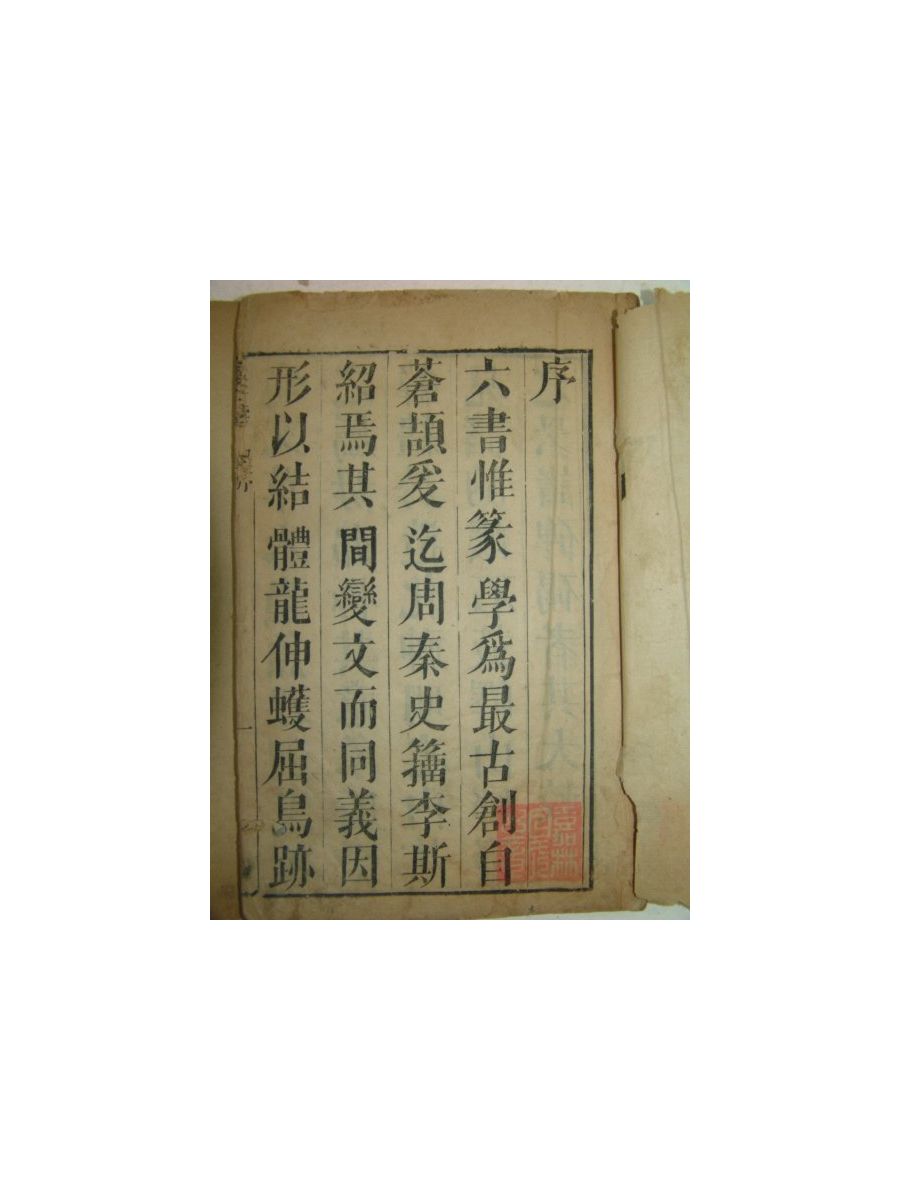 序
六書惟篆學爲最古創自
蒼頡爰迄周秦史籒李斯
紹焉其間變文而同義因
形以結體龍伸蠖屈鳥跡